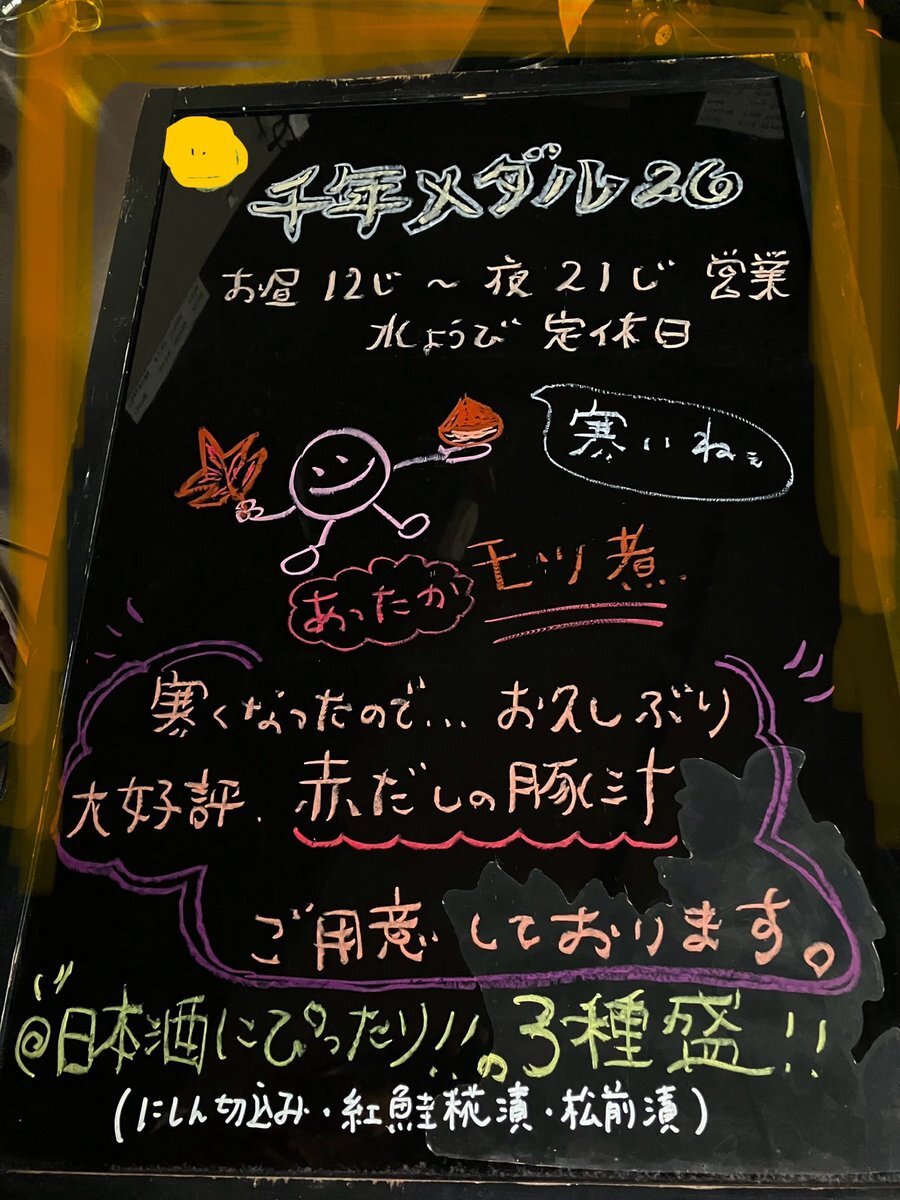 千年メダル26
お昼 12じ 〜 夜 21じ 営業
水ようび 定休日
寒いねぇ
あったか モツ煮
寒くなったので… お久しぶり
大好評、赤だしの豚汁
ご用意しております。
@日本酒にぴったり!!の3種盛!!
(にしん切込み・紅鮭糀漬・松前漬)